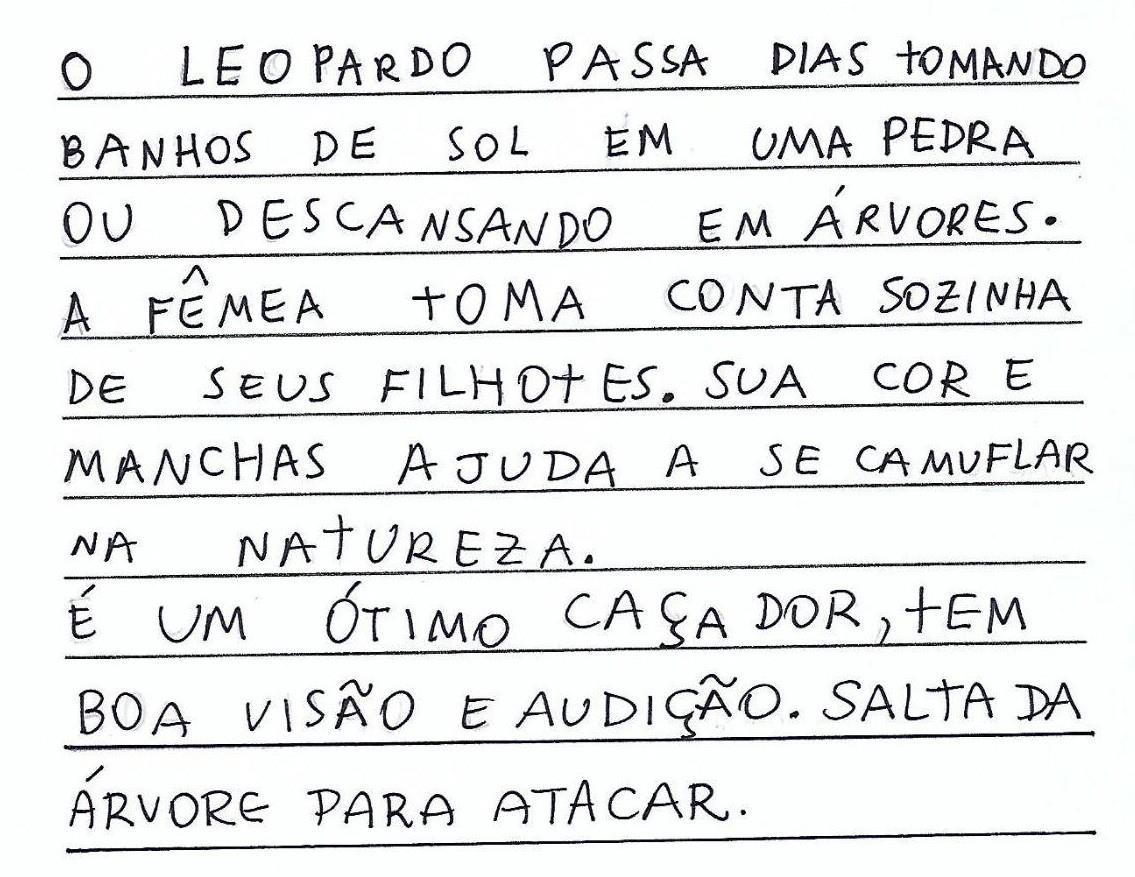 O LEOPARDO PASSA DIAS TOMANDO
BANHOS DE SOL EM UMA PEDRA
OU DESCANSANDO EM ÁRVORES.
A FÊMEA TOMA CONTA SOZINHA
DE SEUS FILHOTES. SUA COR E
MANCHAS AJUDA A SE CAMUFLAR
NA NATUREZA.
É UM ÓTIMO CAÇADOR, TEM
BOA VISÃO E AUDIÇÃO. SALTA DA
ÁRVORE PARA ATACAR.